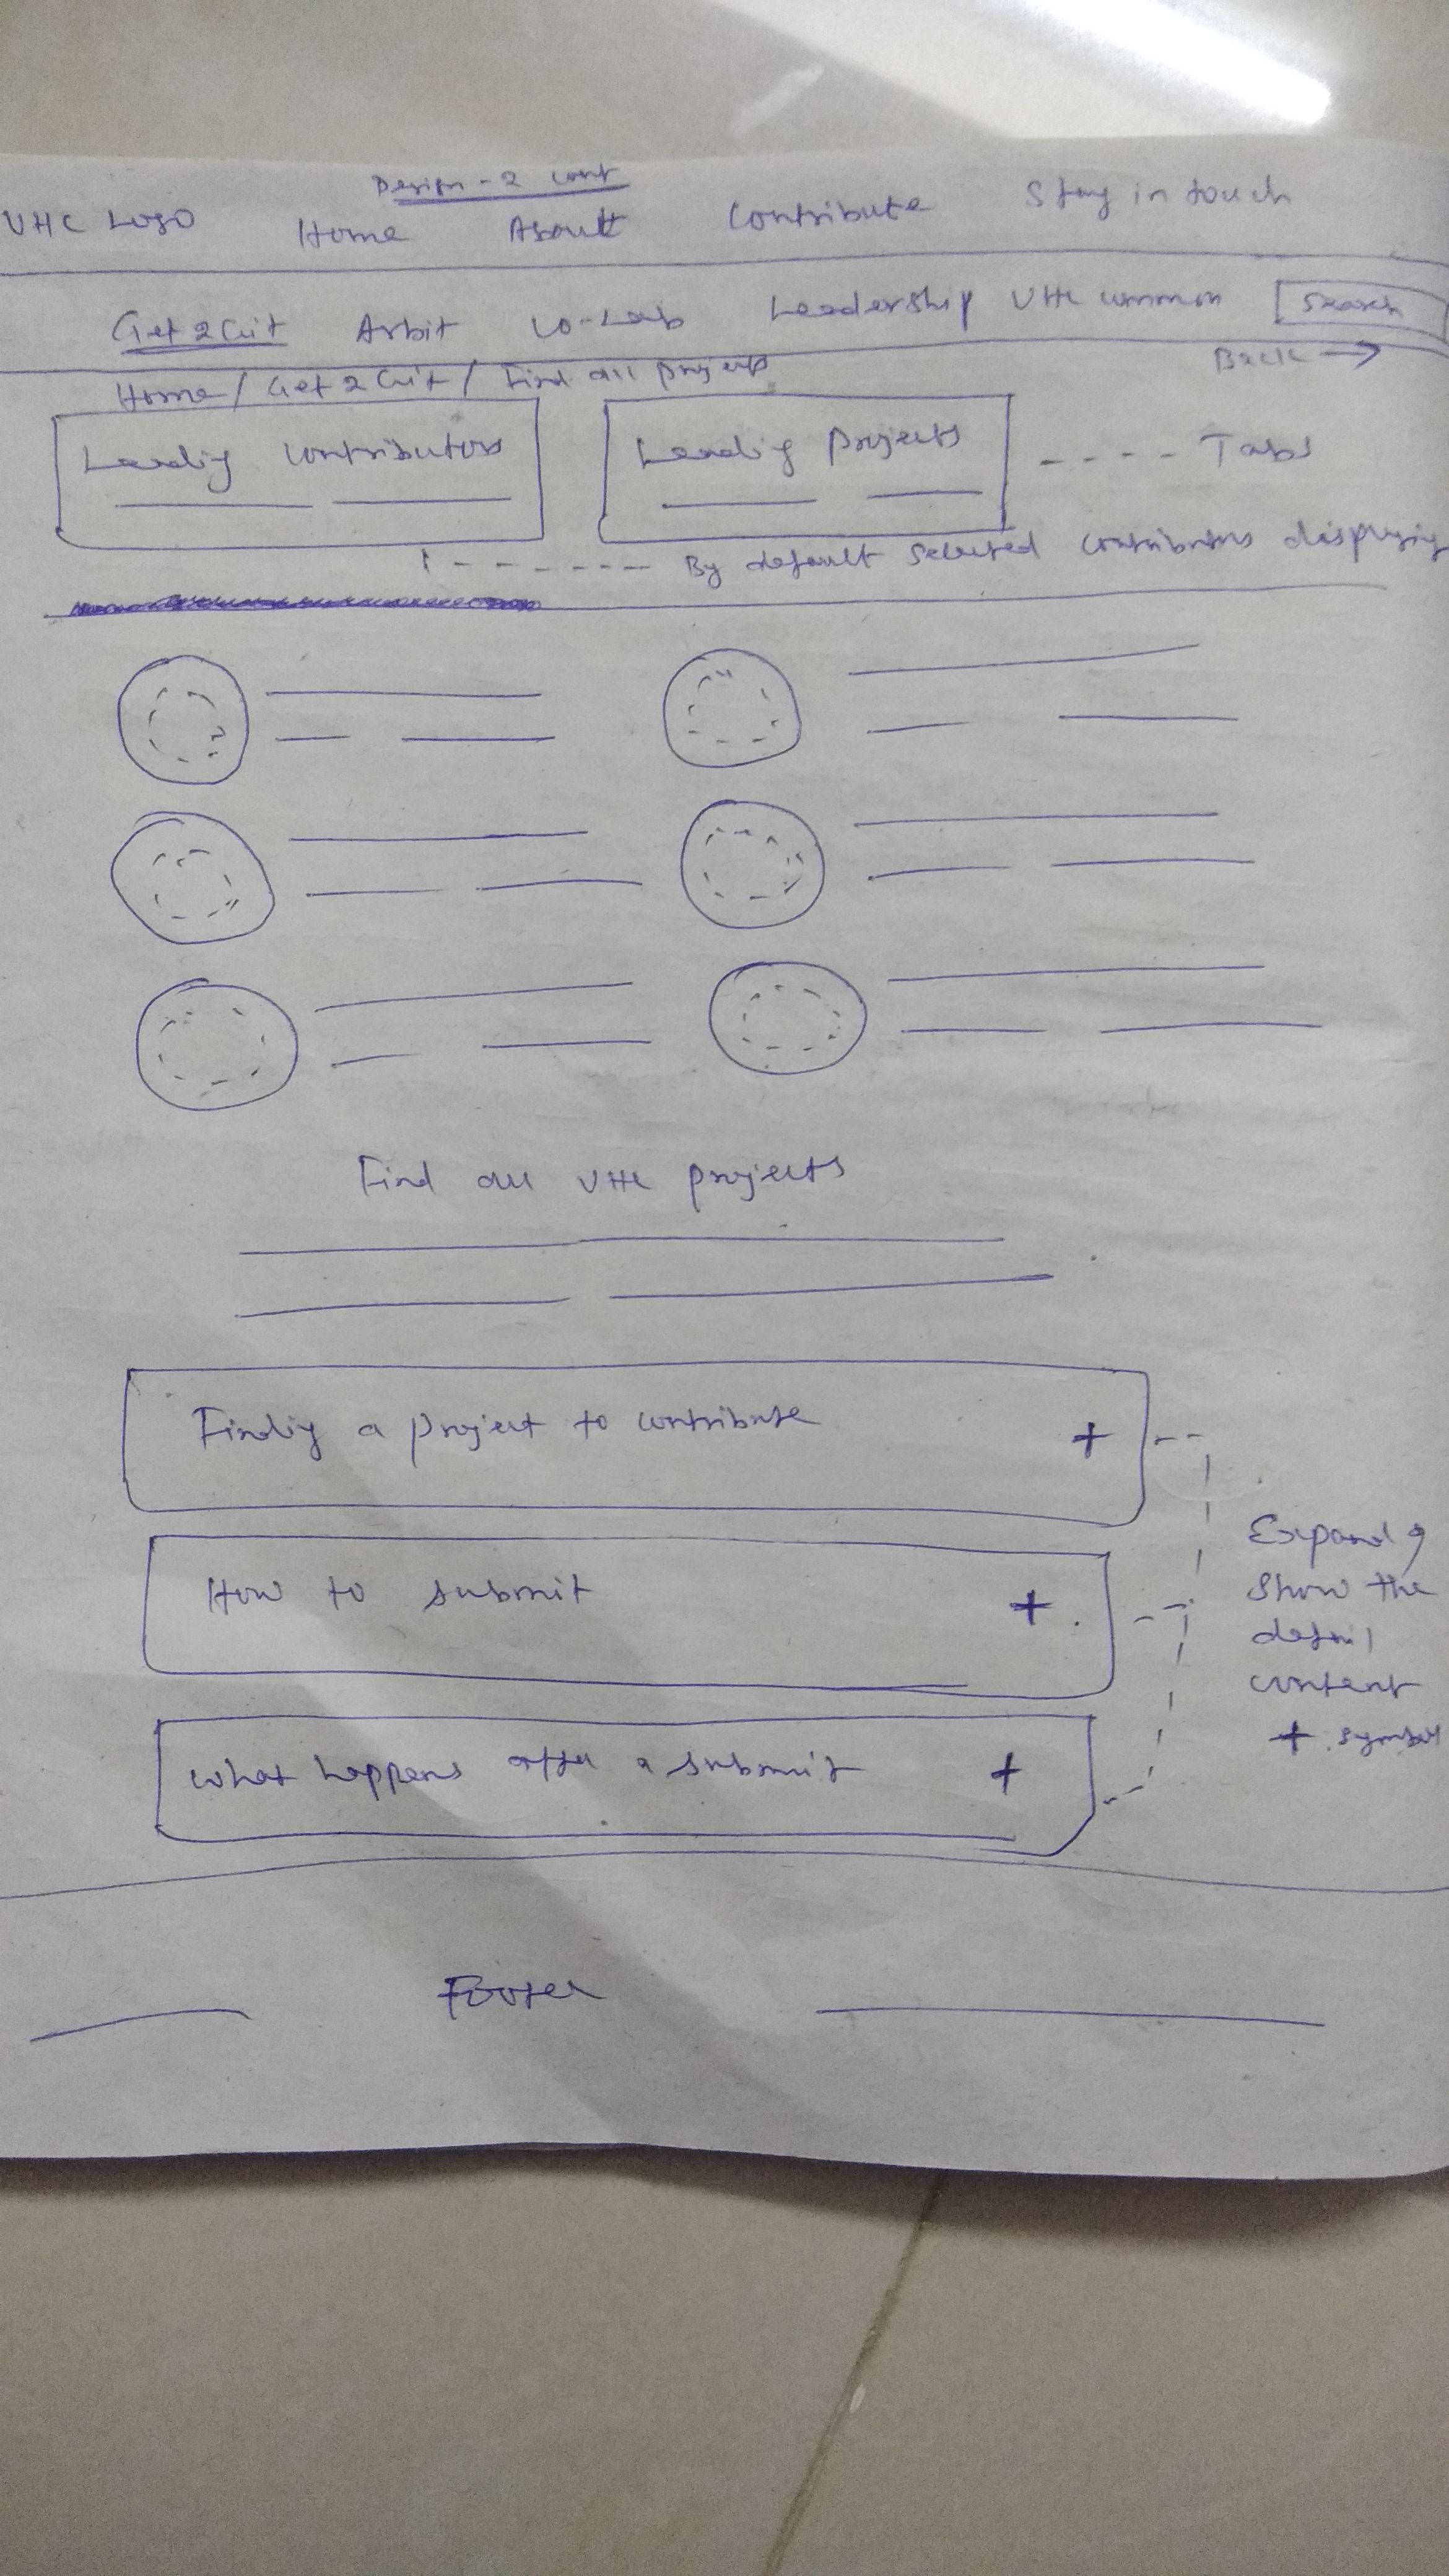 Design-2 cont
VHC Logo Home About Contribute Stay in touch
Get2Cuit Arbit Co-Lab Leadership VHC common Search
Back →
Home / Get2Cuit / Find all projects
Leadig contributors Leadig projects ---- Tabs
By default selected contributors displaying
Find all VHC projects
Findig a project to contribute +
How to submit +
What happens after a submit +
Expand &
Show the
detail
content
+ symbol
Footer